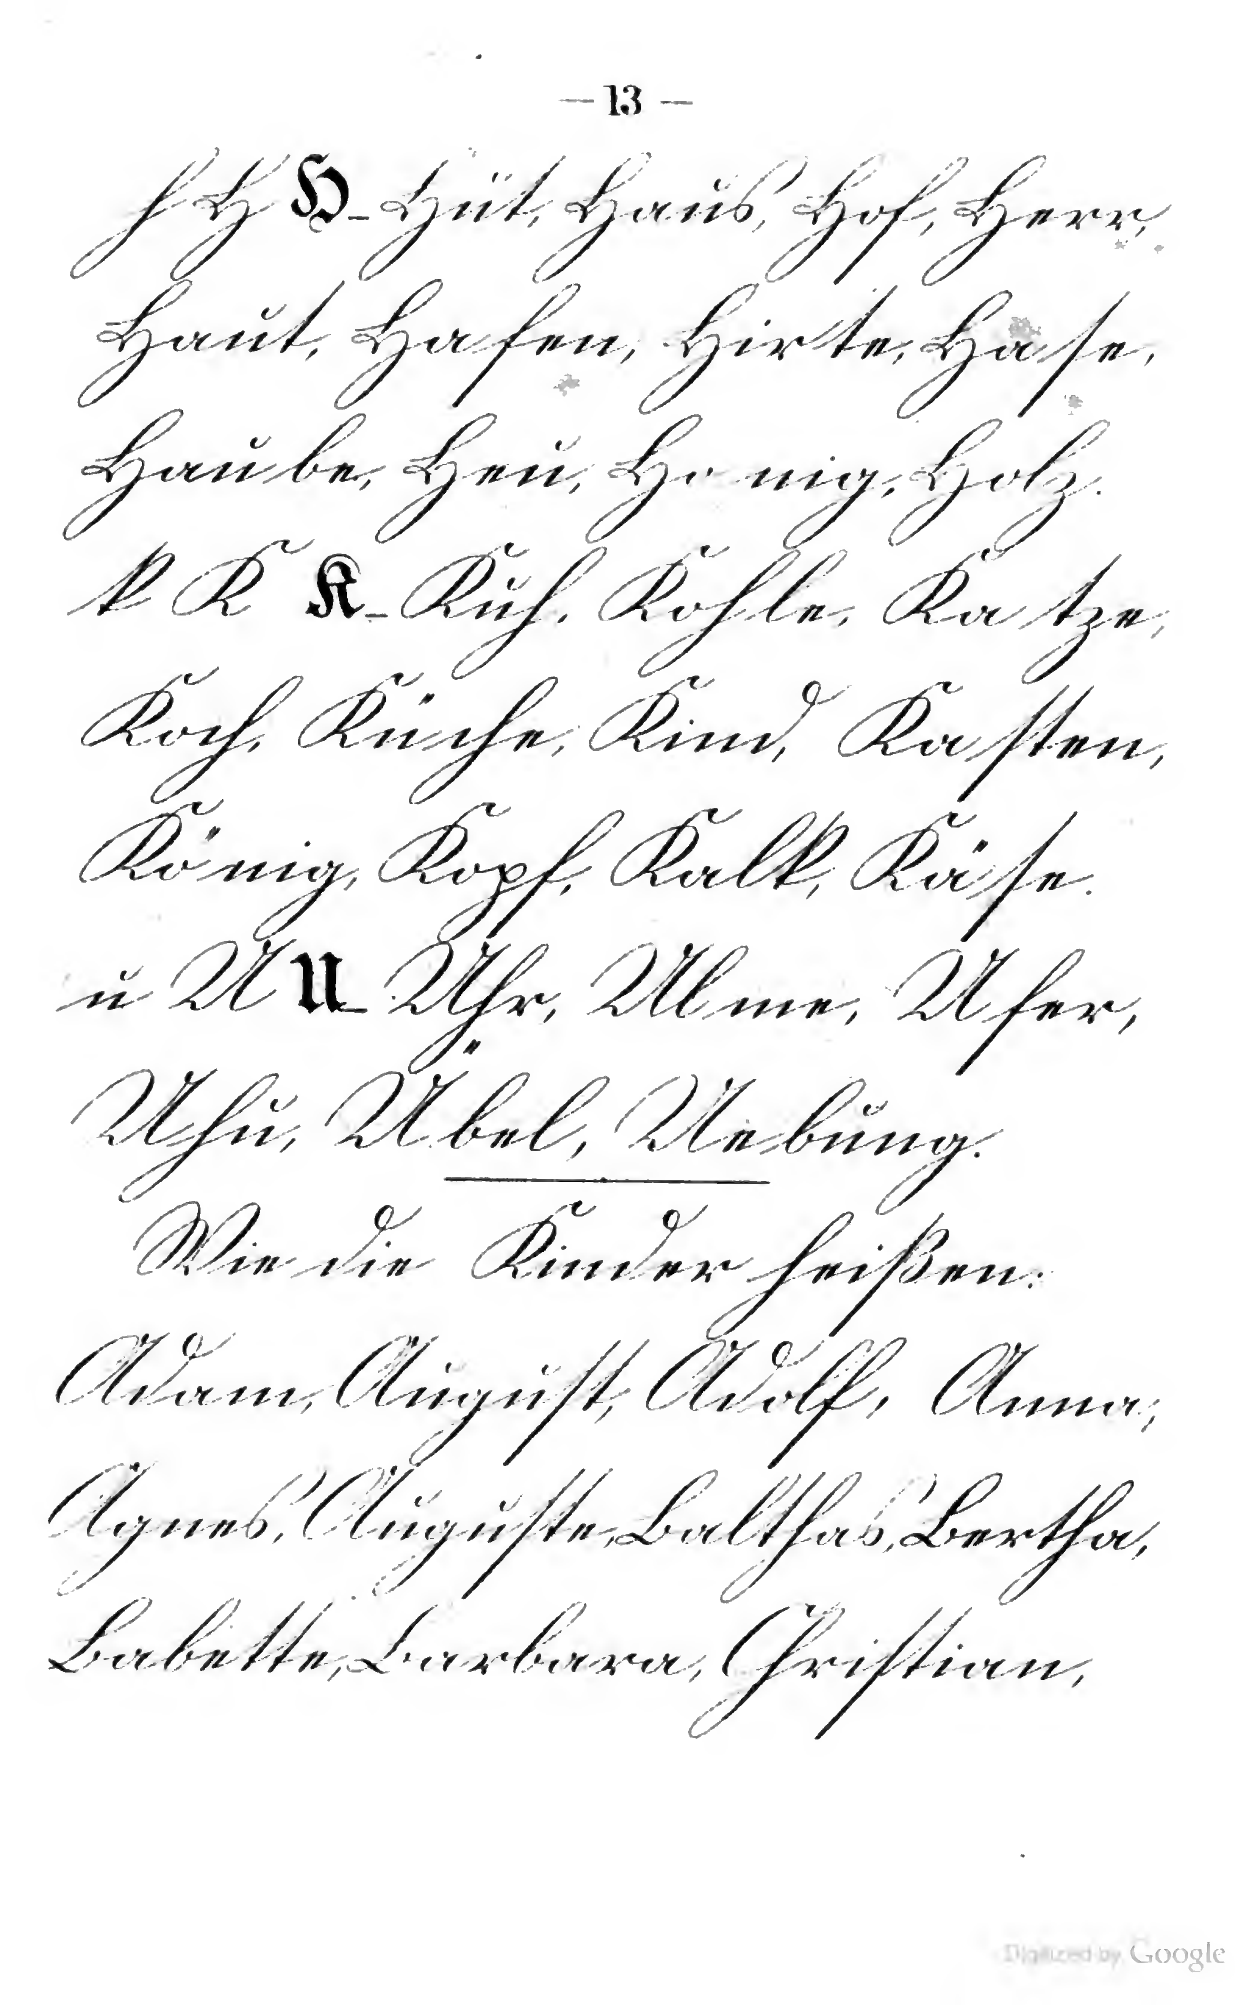 — 13 —
h H H – Hut, Haus, Hof, Herr,
Haut, Hafen, Hirte, Hase,
Haube, Heu, Honig, Holz.
k K K – Kuh, Kohle, Katze,
Koch, Küche, Kind, Kasten,
König, Kopf, Kalk, Käse.
u U U – Uhr, Ulme, Ufer,
Uhu, Übel, Uebung.
Wie die Kinder heißen:
Adam, August, Adolf, Anna,
Agnes, Auguste, Balthas, Bertha,
Babette, Barbara, Christian,
Digitized by Google